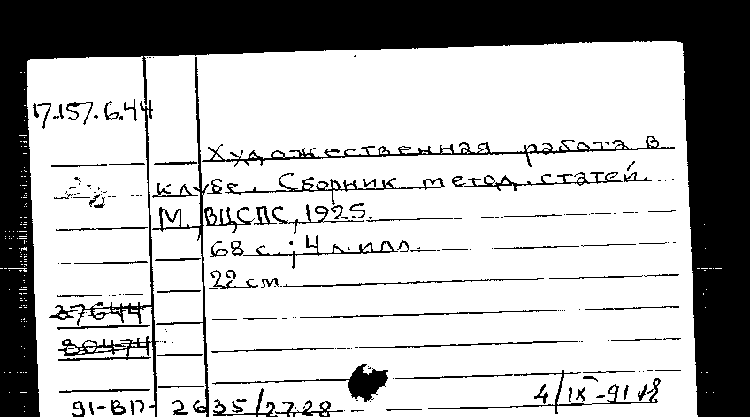 17.157.6.44
Художественная работа в
клубе. Сборник метод. статей.
М., ВЦСПС, 1925.
68 с.; 4 л. илл.
22 см.
37644
80474
91-ВП- 2635/2728
4/IX-91